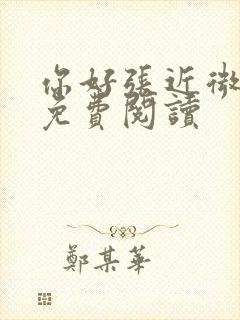 你好張近微
免費閱讀
鄭某華